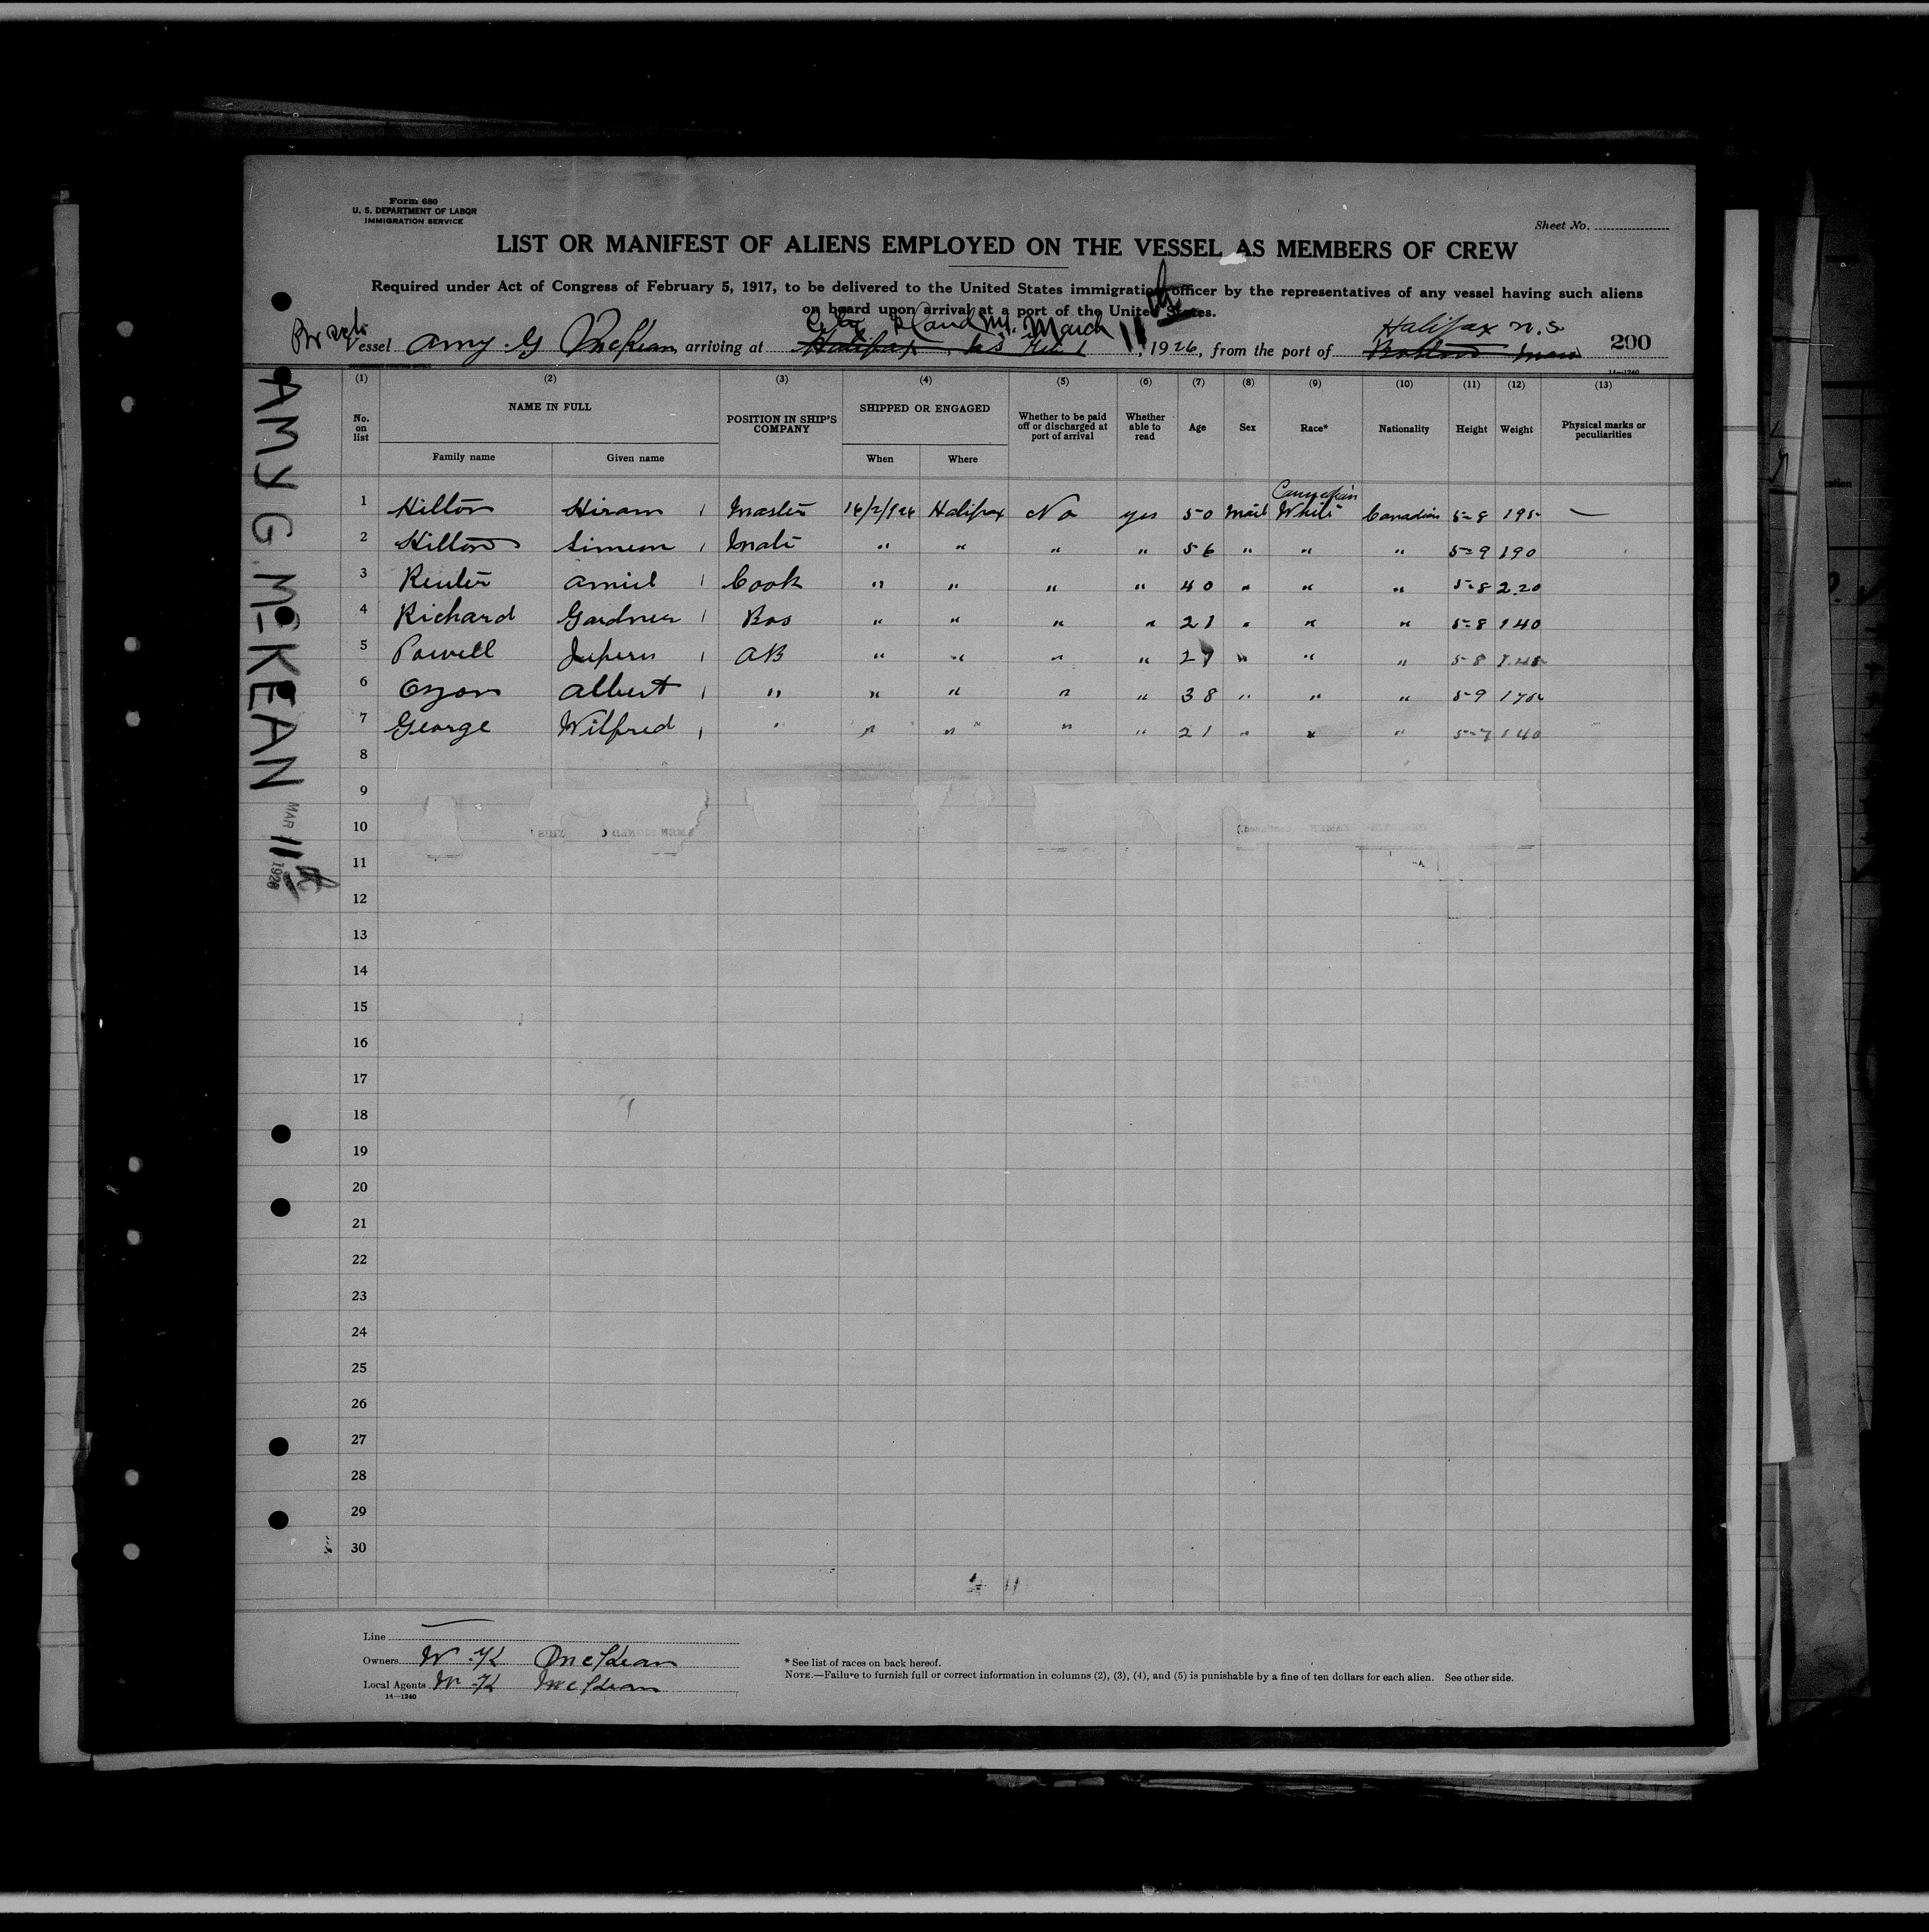 Form 680
U. S. DEPARTMENT OF LABOR
IMMIGRATION SERVICE
Sheet No.
LIST OR MANIFEST OF ALIENS EMPLOYED ON THE VESSEL AS MEMBERS OF CREW
Required under Act of Congress of February 5, 1917, to be delivered to the United States immigration officer by the representatives of any vessel having such aliens
on board upon arrival at a port of the United States.
City Island NY. March 11th Halifax N.S.
Vessel Amy. G McKean, arriving at Halifax, NS Feb, 1926, from the port of 200
14—1240
AMY G. McKEAN
MAR 11th 1926
(1) (2) (3) (4) (5) (6) (7) (8) (9) (10) (11) (12) (13)
No. on list NAME IN FULL POSITION IN SHIP'S COMPANY SHIPPED OR ENGAGED Whether to be paid off or discharged at port of arrival Whether able to read Age Sex Race* Nationality Height Weight Physical marks or peculiarities
Family name Given name When Where
Canadian
1 Hilton Hiram Master 16/2/926 Halifax No yes 50 Mail White Canadian 5-8 195 —
2 Hilton Simeon Mate " " " " 56 " " " 5-9 190
3 Reuter Amiel Cook " " " " 40 " " " 5-8 220
4 Richard Gardner Bos " " " " 21 " " " 5-8 140
5 Powell AB " " " " " " " 5-8 145
6 Albert " " " " " 38 " " " 5-9
7 George Wilfred " " " " " 21 " " " 5-7 140
8
9
10
11
12
13
14
15
16
17
18
19
20
21
22
23
24
25
26
27
28
29
30
Line
Owners W. K McKean
Local Agents W. K McKean
14—1240
* See list of races on back hereof.
NOTE.—Failure to furnish full or correct information in columns (2), (3), (4), and (5) is punishable by a fine of ten dollars for each alien. See other side.